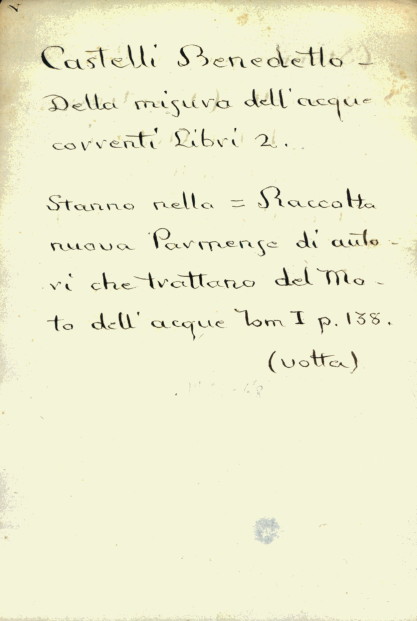 Castelli Benedetto -
Della misura dell'acque
correnti Libri 2.
Stanno nella = Raccolta
nuova Parmense di auto-
ri che trattano del Mo-
to dell'acque Tom I p. 138.
(volta)